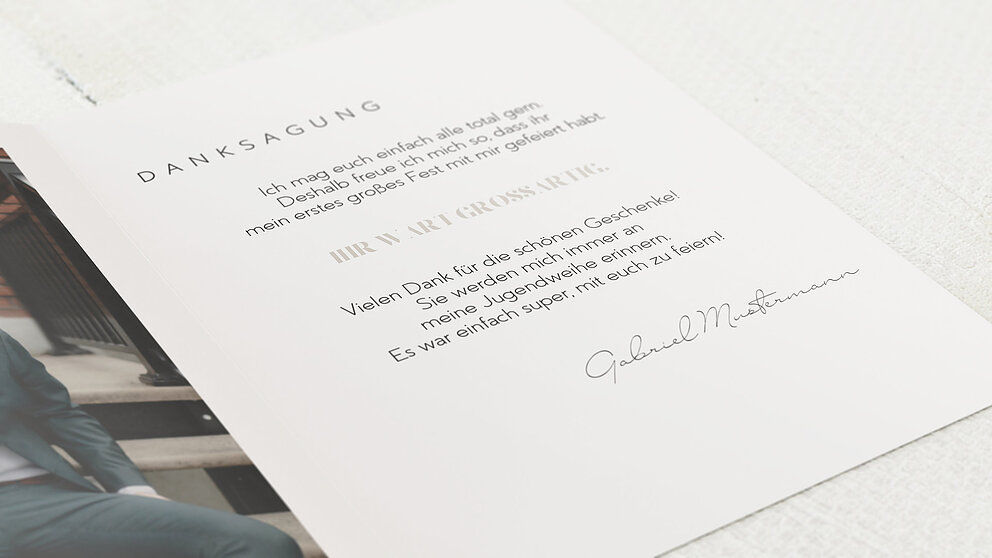 DANKSAGUNG
Ich mag euch einfach alle total gern.
Deshalb freue ich mich so, dass ihr
mein erstes großes Fest mit mir gefeiert habt.
IHR WART GROSSARTIG.
Vielen Dank für die schönen Geschenke!
Sie werden mich immer an
meine Jugendweihe erinnern.
Es war einfach super, mit euch zu feiern!
Gabriel Mustermann